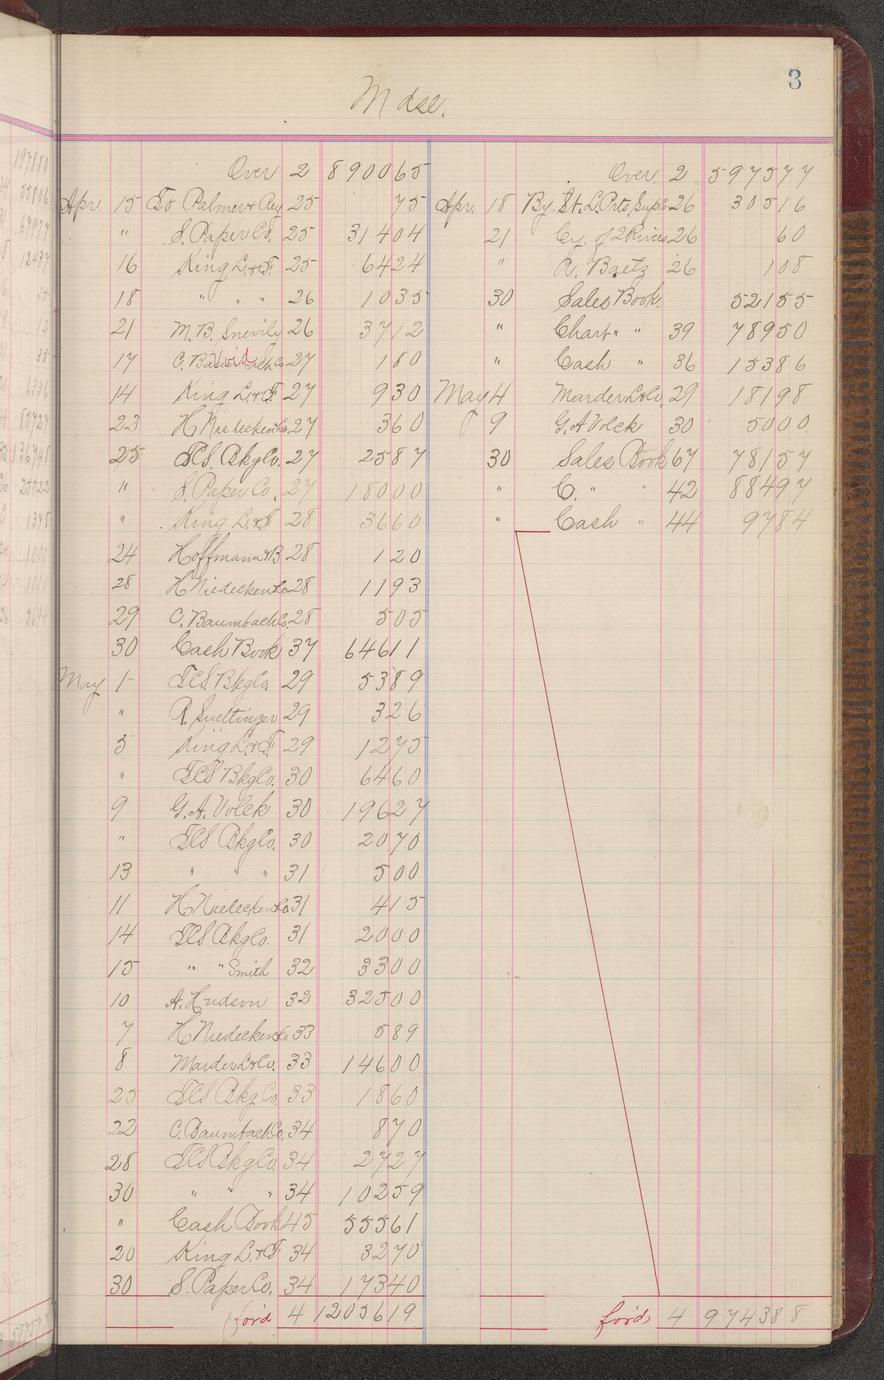 3
Mdse.
Over 2 890065
Apr. 15 To Palmer & Rey 25 75
" S. Paper Co. 25 31404
16 King L. & F. 25 6424
18 " " " 26 1035
21 M. B. Snevily 26 3712
17 C. Void 27 180
14 King L. & F. 27 930
23 H Niedecken Co. 27 360
25 TCS. Bkg Co. 27 2587
" S. Paper Co. 27 18000
" King L. & F 28 3660
24 Hoffmann & B 28 120
28 H Niedecken Co 28 1193
29 C. Baumbach Co. 28 505
30 Cash Book 37 64611
May 1 TCS Bkg Co. 29 5389
" R. 29 326
5 King L. & F. 29 1275
" TCS Bkg Co. 30 6460
9 G. A. Volck 30 19627
" TCS Bkg Co. 30 2070
13 " " " 31 500
11 H Niedecken Co 31 415
14 TCS Bkg Co. 31 2000
15 " " Smith 32 3300
10 A. Hudson 32 32500
7 H Niedecken Co 33 589
8 Marder L & Co. 33 14600
25 TCS Bkg Co. 33 1860
22 C. Baumbach Co. 34 870
28 TCS Bkg Co. 34 2727
30 " " " 34 10259
" Cash Book 45 55561
20 King L. & F 34 3270
30 S. Paper Co. 34 17340
for'd 4 1205619
Over. 2 597577
Apr. 18 By St. L. Prts. Supls 26 30516
21 Cy. of 2 Rivers 26 60
" R. Baetz 26 108
30 Sales Book. 52155
" Chart " " 39 78950
" Cash " 36 15386
May 4 Marder L & Co. 29 18198
9 G. A Volck 30 5000
30 Sales Book 67 78157
" C. " " 42 88497
" Cash " 44 9784
for'd, 4 974388